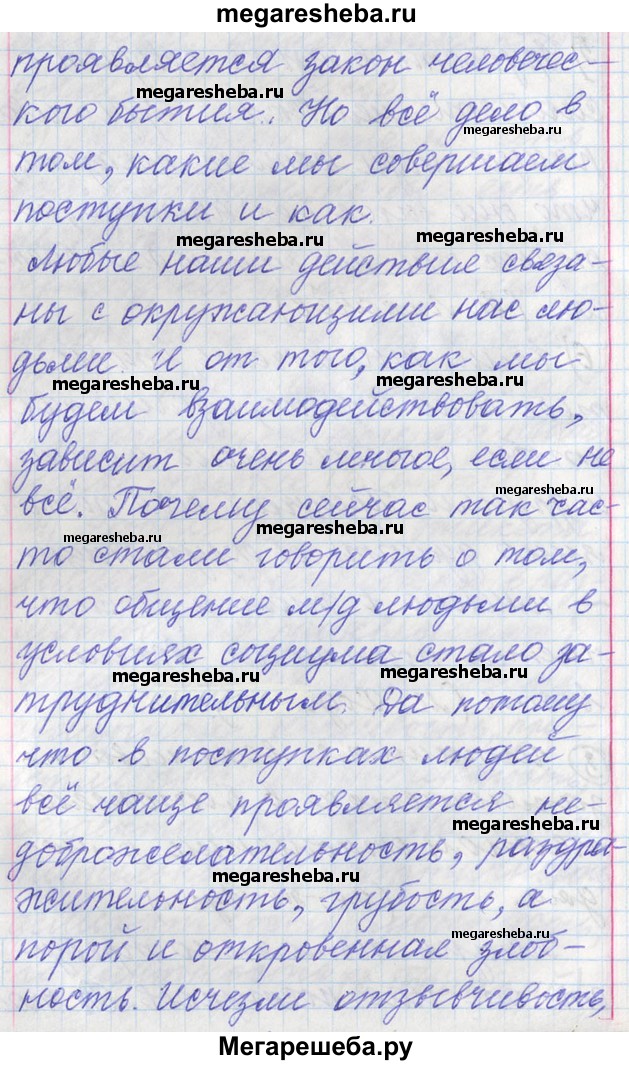 megaresheba.ru
проявляется закон человечес-
кого бытия. Но всё дело в
megaresheba.ru
megaresheba.ru
том, какие мы совершаем
поступки и как.
megaresheba.ru
megaresheba.ru
Любые наши действия связа-
ны с окружающими нас лю-
дьми. И от того, как мы
megaresheba.ru
megaresheba.ru
будем взаимодействовать,
зависит очень многое, если не
megaresheba.ru
всё. Почему сейчас так час-
megaresheba.ru
megaresheba.ru
то стали говорить о том,
что общение м/д людьми в
условиях социума стало за-
megaresheba.ru
megaresheba.ru
труднительным. Да потому
что в поступках людей
всё чаще проявляется не-
megaresheba.ru
доброжелательность, раздра-
megaresheba.ru
жительность, грубость, а
megaresheba.ru
порой и откровенная злоб-
ность. Исчезли отзывчивость,
Мегарешеба.ру